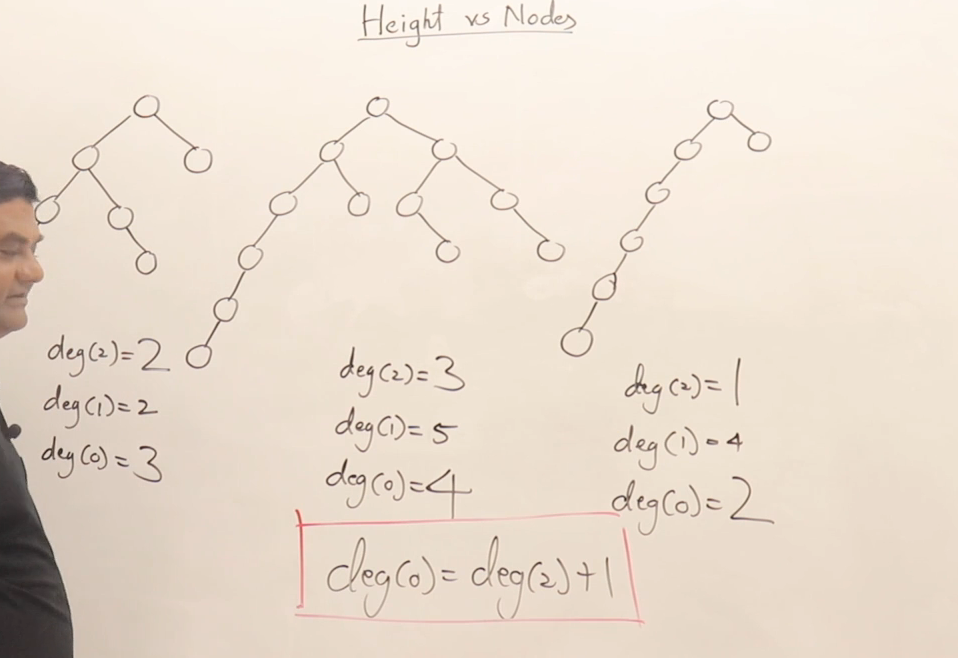 Height vs Nodes
deg(2)=2
deg(1)=2
deg(0)=3
deg(2)=3
deg(1)=5
deg(0)=4
deg(2)=1
deg(1)=4
deg(0)=2
deg(0)=deg(2)+1